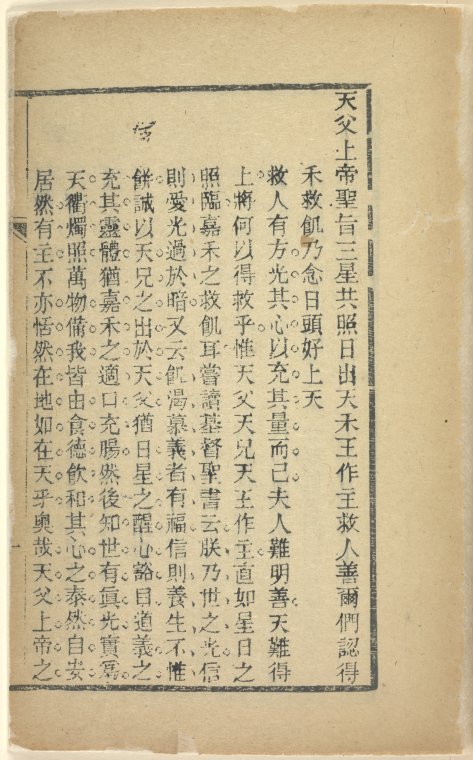 天父上帝聖旨三星共照日出天禾王作主救人善爾們認得
禾救飢乃念日頭好上天
救人有方光其心以充其量而已夫人難明善天難得
上將何以得救乎惟天父天兄天王作主直如星日之
照臨嘉禾之救飢耳嘗讀基督聖書云朕乃世之光信
則愛光過於暗又云飢渴慕義者有福信則養生不惟
餅誠以天兄之出於天父猶日星之醒心豁目道義之
充其靈體猶嘉禾之適口充腸然後知世有眞光實爲
天衢燭照萬物備我皆由食德飲和其心之泰然自安
居然有主不亦恬然在地如在天乎奥哉天父上帝之